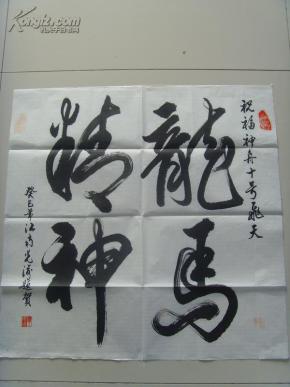 祝福神舟十号飞天
龍馬
精神
癸巳年江
Kongfz.com
孔夫子旧书网